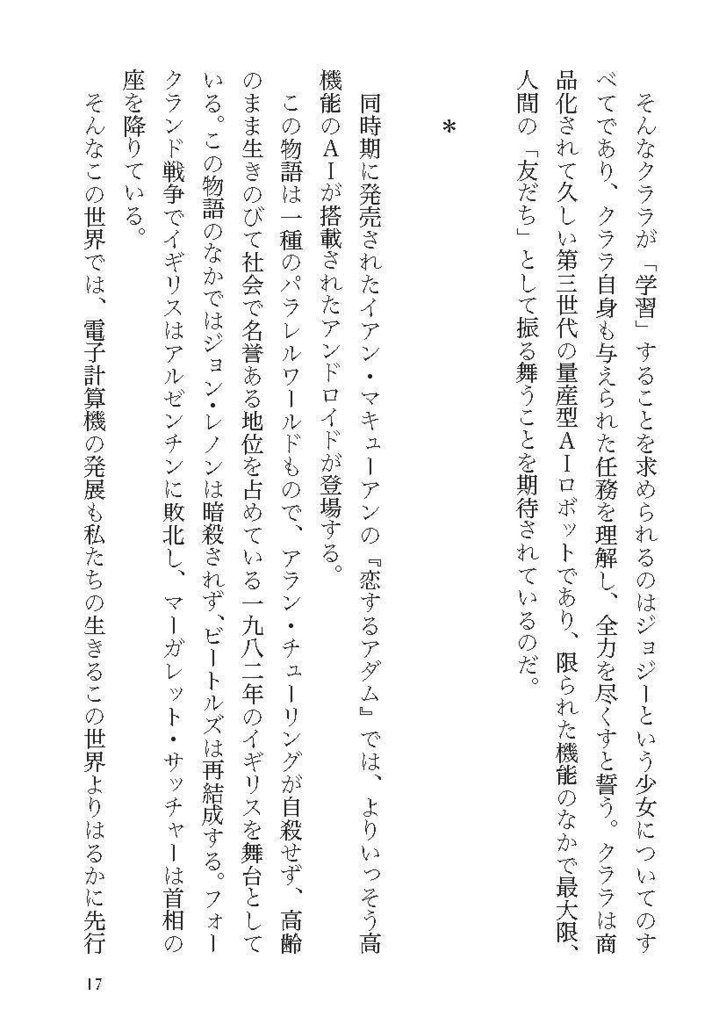 そんなクララが「学習」することを求められるのはジョジーという少女についてのす
べてであり、クララ自身も与えられた任務を理解し、全力を尽くすと誓う。クララは商
品化されて久しい第三世代の量産型ＡＩロボットであり、限られた機能のなかで最大限、
人間の「友だち」として振る舞うことを期待されているのだ。
＊
同時期に発売されたイアン・マキューアンの『恋するアダム』では、よりいっそう高
機能のＡＩが搭載されたアンドロイドが登場する。
この物語は一種のパラレルワールドもので、アラン・チューリングが自殺せず、高齢
のまま生きのびて社会で名誉ある地位を占めている一九八二年のイギリスを舞台として
いる。この物語のなかではジョン・レノンは暗殺されず、ビートルズは再結成する。フォー
クランド戦争でイギリスはアルゼンチンに敗北し、マーガレット・サッチャーは首相の
座を降りている。
そんなこの世界では、電子計算機の発展も私たちの生きるこの世界よりはるかに先行
17